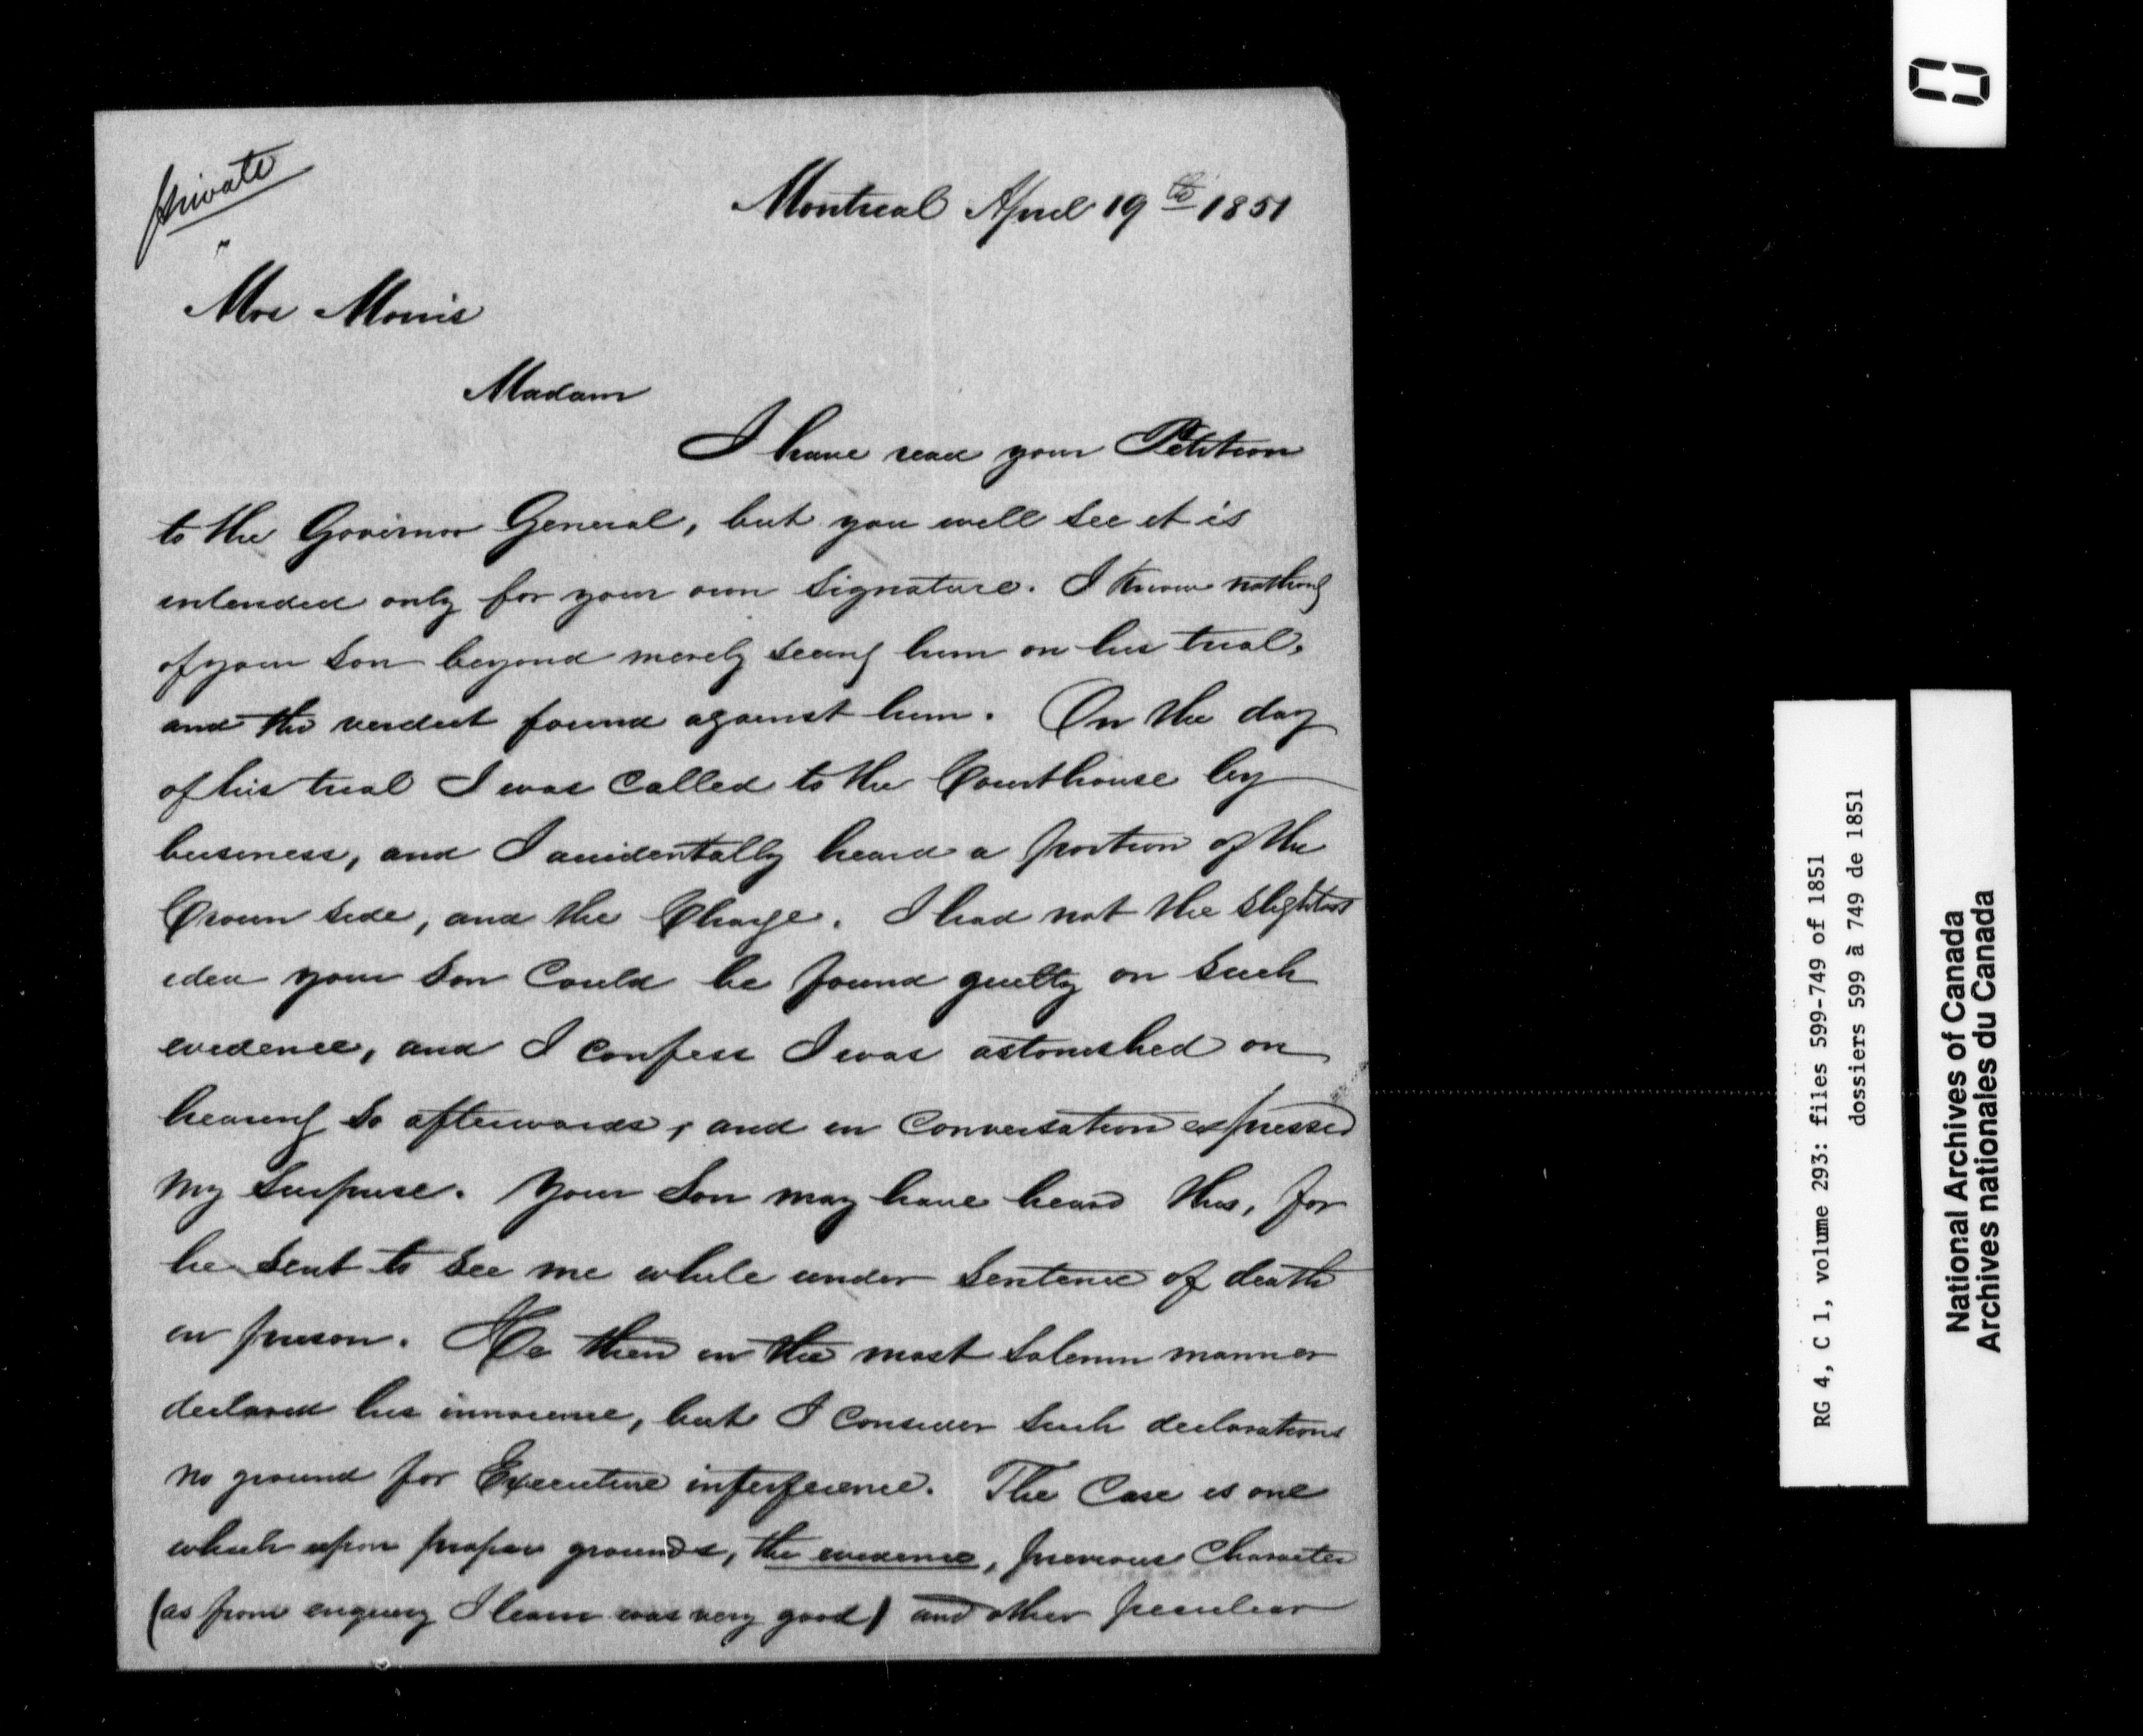 private
Montreal April 19th 1851
Mrs Morris
Madam
I have read your Petition
to the Governor General, but you will see it is
intended only for your own signature. I know nothing
of your son beyond merely seeing him on his trial,
and the verdict found against him. On the day
of his trial I was called to the Courthouse by
business, and I accidentally heard a portion of the
Crown side, and the Charge. I had not the slightest
idea your son could be found guilty on such
evidence, and I confess I was astonished on
hearing so afterwards, and in conversation expressed
my surprise. Your son may have heard this, for
he sent to see me while under sentence of death
in prison. He then in the most solemn manner
declared his innocence, but I consider such declarations
no ground for Executive interference. The Case is one
which upon proper grounds, the evidence, previous Character
(as from enquiry I learn was very good) and other peculiar
RG 4, C 1, volume 293: files 599-749 of 1851
dossiers 599 à 749 de 1851
National Archives of Canada
Archives nationales du Canada